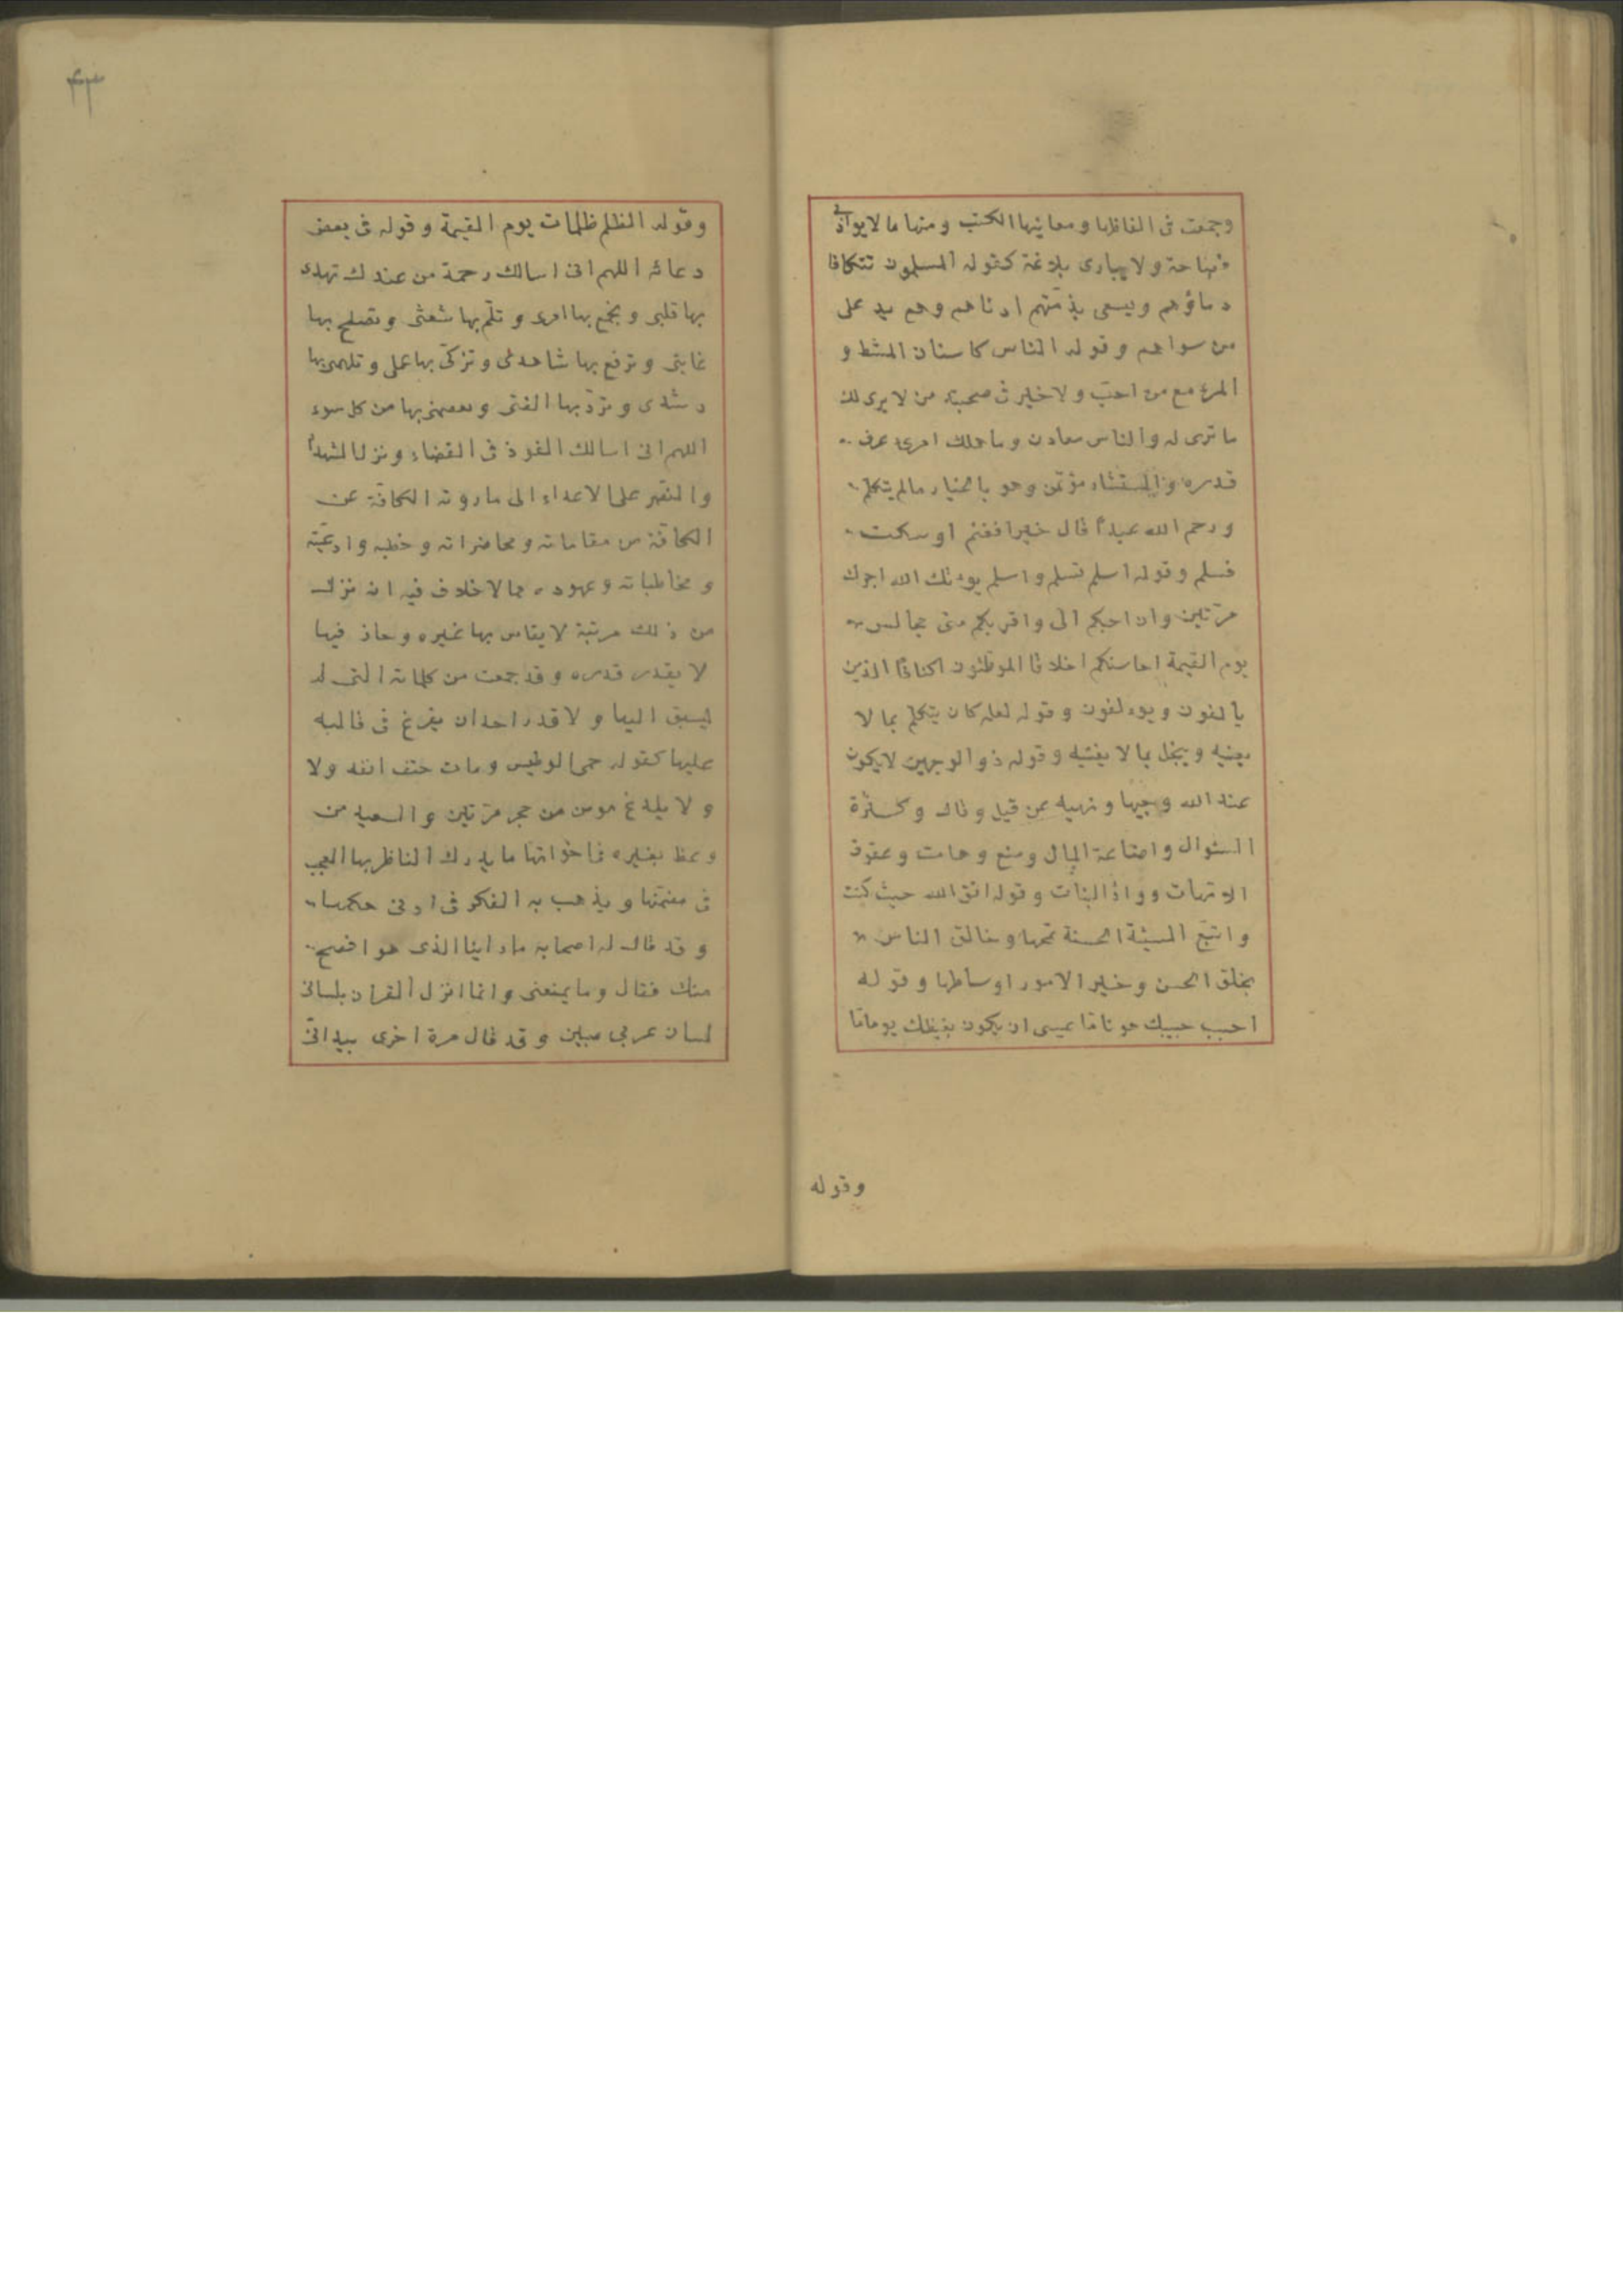 وجمعت فى الفاظها ومعاينها الكتب ومنها ما لا يوازى
فصاحة ولا يبارى بلاغة كقوله المسلمون تتكافا
دماؤهم ويسعى بذمتهم ادناهم وهم يد على
من سواهم وقوله الناس كاسنان المشط و
المرء مع من احبّ ولا خير فى صحبة من لا يرى لك
ما ترى له والناس معادن وما هلك امرئ عرف
قدره والمستشار مؤتمن وهو بالخيار مالم يتكلم
ورحم الله عبداً قال خيرا فغنم او سكت
فسلم وقوله اسلم تسلم واسلم يوءتك الله اجرك
مرّتين وان احبكم الىّ واقربكم منى مجالس
يوم القيمة احاسنكم اخلاقا الموطئون اكنافا الذين
يالفون ويوءلفون وقوله لعله كان يتكلم بما لا
يعنيه ويبخل بما لا يغنيه وقوله ذو الوجهين لا يكون
عند الله وجيها ونهيه عن قيل وقال وكثرة
السئوال واضاعة المال ومنع وهات وعقوق
الامّهات وواذ البنات وقوله اتق الله حيث كنت
واتبع السيّئة الحسنة تمحها وخالق الناس
بخلق الحسن وخير الامور اوساطها وقوله
احبب حبيبك هونا مّا عيسى ان يكون بغيظك يوما مّا
وقوله
۴۳
وقوله الظلم ظلمات يوم القيمة وقوله فى بعض
دعائه اللهم انى اسالك رحمة من عندك تهدى
بها قلبى وتجمع بها امرى وتلّم بها شعثى وتصلح بها
غايتى وترفع بها شاهدى وتزكّى بها عملى وتلهمنى بها
رشدى وتردّ بها الفتى وتعصمنى بها من كل سوء
اللهم انى اسالك الفوز فى القضاء ونزل الشهدا
والنصر على الاعداء الى ما روته الكافّة عن
الكافّة من مقاماته ومحاضراته وخطبه وادعيّته
ومخاطباته وعهوده مما لا خلاف فيه انه نزل
من ذلك مرتبة لا يقاس بها غيره وحاز فيها
لا يقدر قدره وقد جمعت من كلماته التى لم
ليسبق اليها ولا قدر احد ان يفرغ فى قالبه
عليها كقوله حمى الوطيس ومات حتف انفه ولا
ولا يلدغ مومن من حجر مرّتين والسعيد من
وعظ بغيره فى اخواتها ما يدرك الناظر بها العجب
فى مضمّنها ويذهب به الفكر فى ادنى حكمها
وقد قال له اصحابه ما راينا الذى هو افصح
منك فقال وما يمنعنى وانما انزل القران بلسانى
لسان عربى مبين وقد قال مرة اخرى بيد انّى